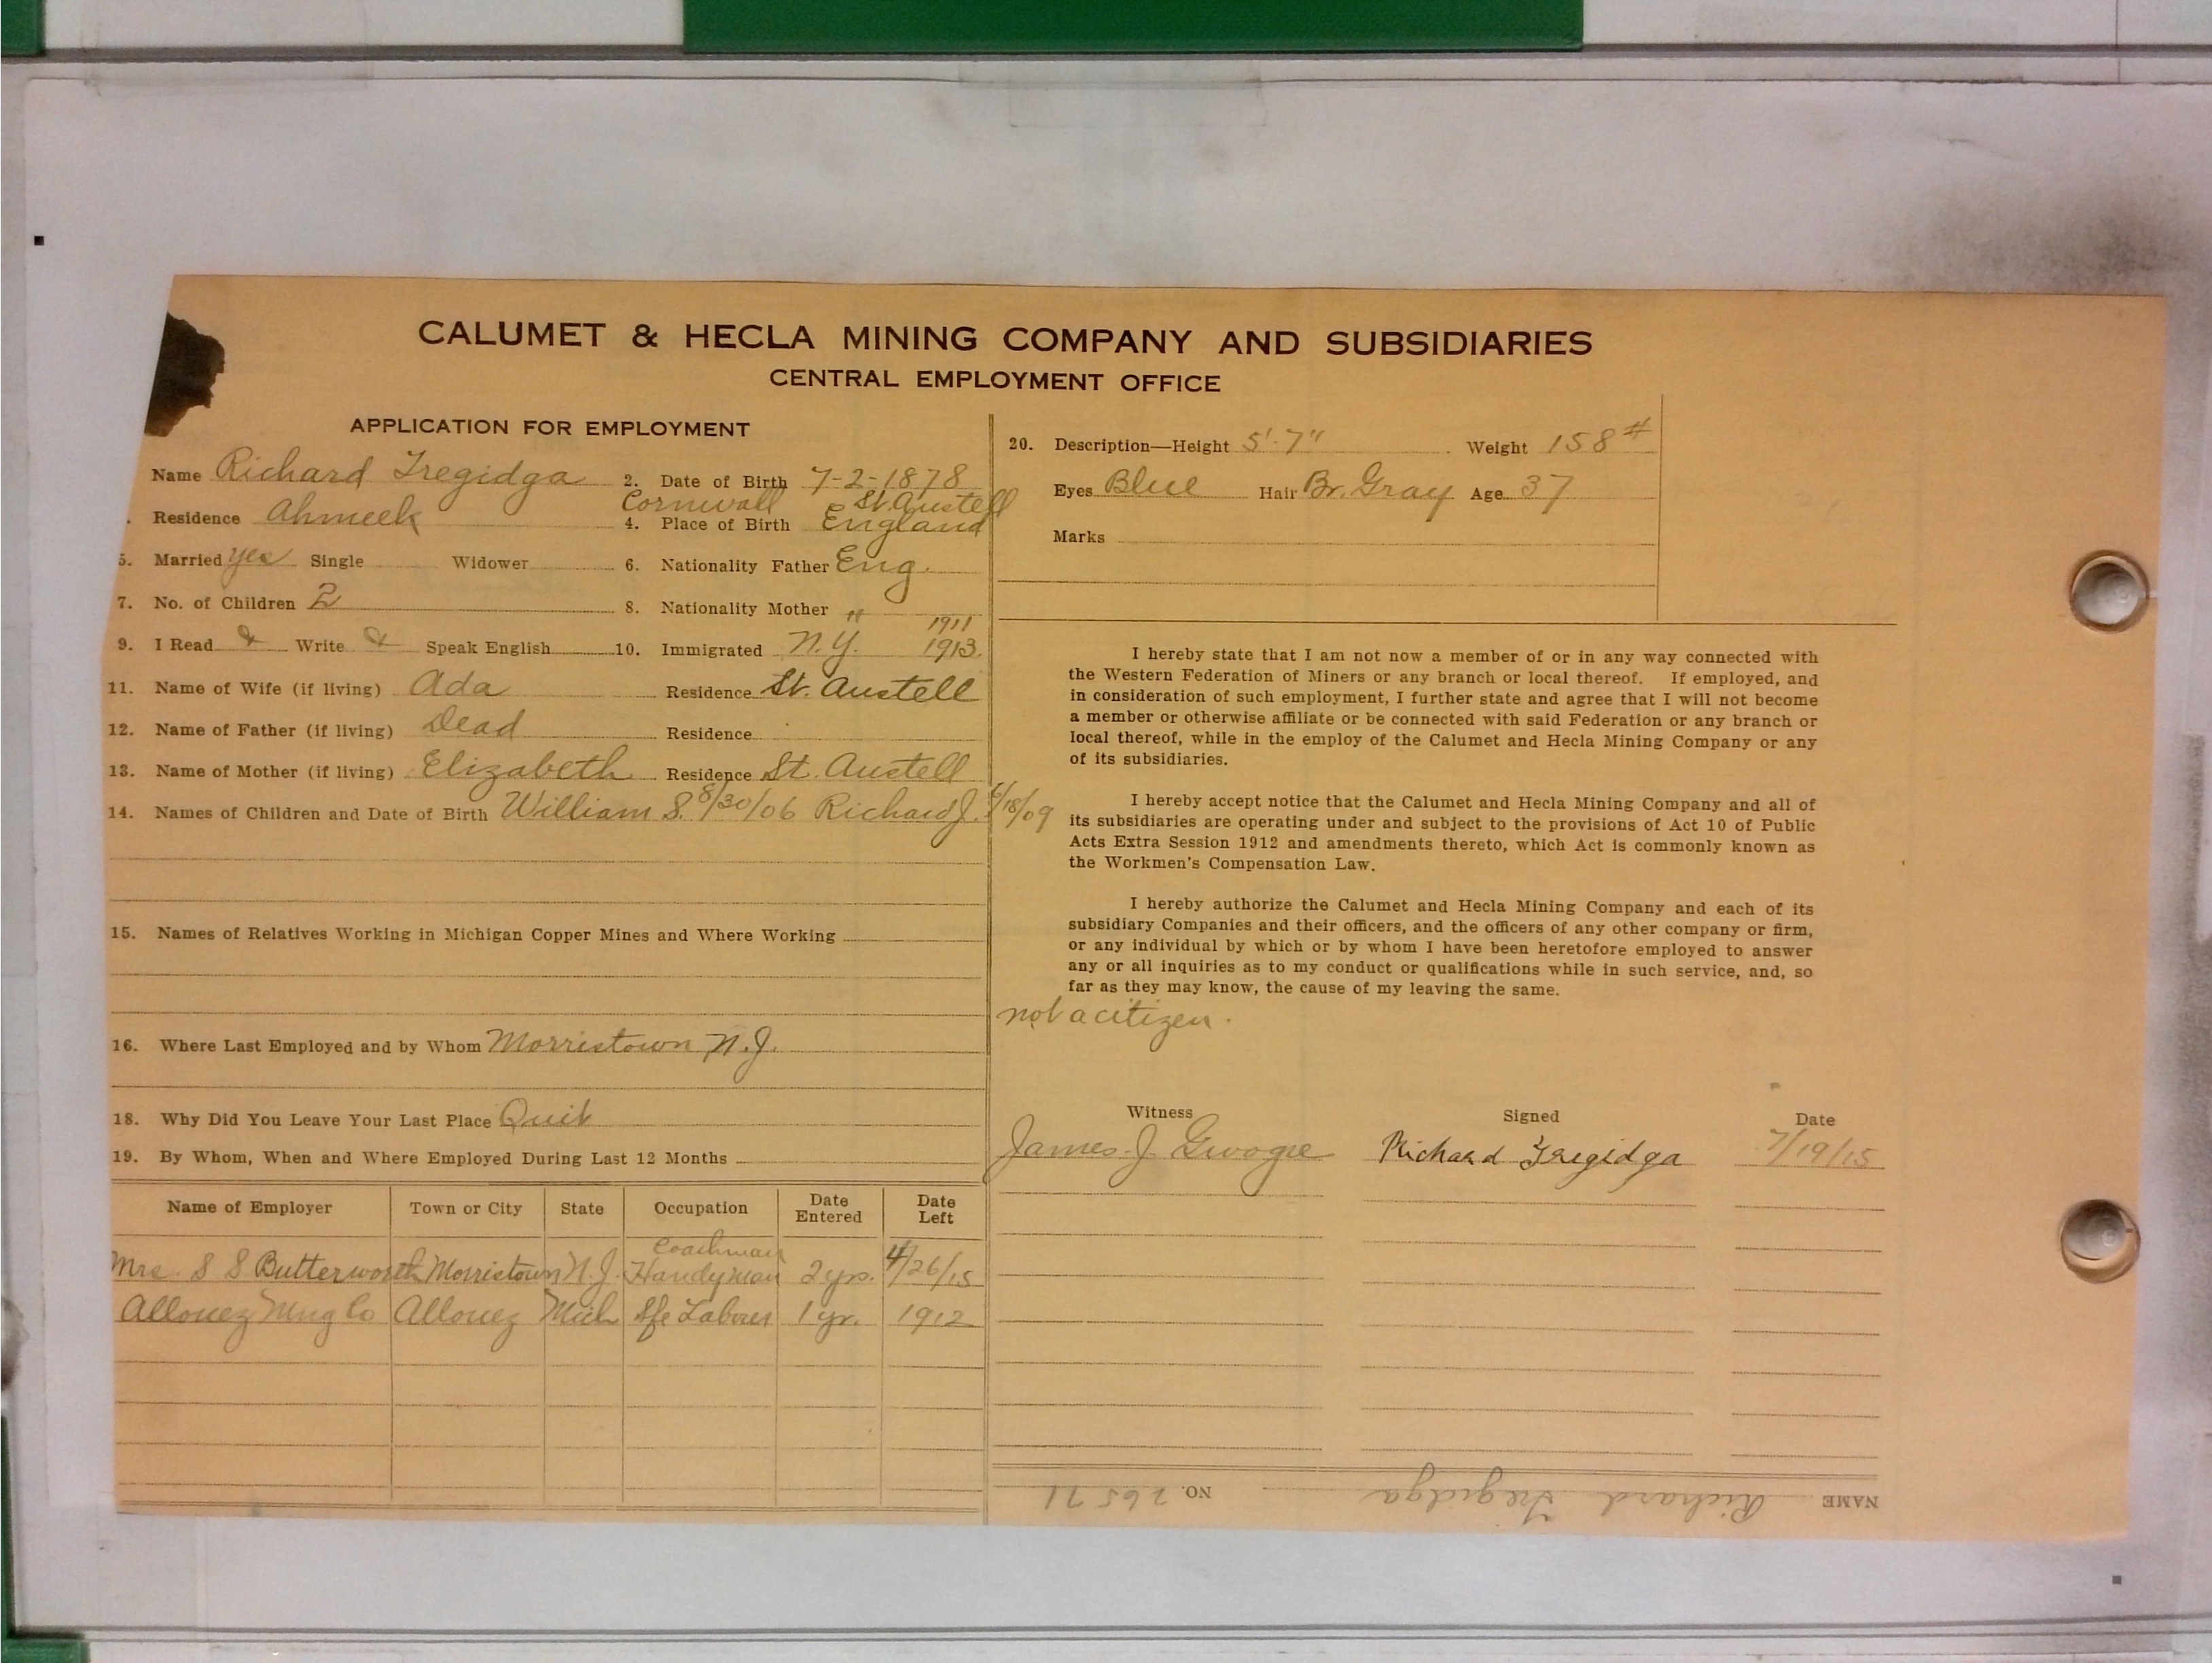 CALUMET & HECLA MINING COMPANY AND SUBSIDIARIES
CENTRAL EMPLOYMENT OFFICE
APPLICATION FOR EMPLOYMENT
Name Richard Tregidga 2. Date of Birth 7-2-1878
Cornwall St. Austell
. Residence Ahmeek 4. Place of Birth England
5. Married yes Single Widower 6. Nationality Father Eng.
7. No. of Children 2 8. Nationality Mother "
1911
9. I Read & Write & Speak English 10. Immigrated N.Y. 1913.
11. Name of Wife (if living) Ada Residence St. Austell
12. Name of Father (if living) Dead Residence
13. Name of Mother (if living) Elizabeth Residence St. Austell
14. Names of Children and Date of Birth William S. 8/30/06 Richard J. /18/09
15. Names of Relatives Working in Michigan Copper Mines and Where Working
16. Where Last Employed and by Whom Morristown N.J.
18. Why Did You Leave Your Last Place Quit
19. By Whom, When and Where Employed During Last 12 Months
Name of Employer Town or City State Occupation Date Entered Date Left
Coachman
Mrs. S S Butterworth Morristown N.J. Handyman 2 yrs. 4/26/15
Allouez Mng Co Allouez Mich Sfe Laborer 1 yr. 1912
20. Description—Height 5'-7" Weight 158#
Eyes Blue Hair Br. Gray Age 37
Marks
I hereby state that I am not now a member of or in any way connected with
the Western Federation of Miners or any branch or local thereof. If employed, and
in consideration of such employment, I further state and agree that I will not become
a member or otherwise affiliate or be connected with said Federation or any branch or
local thereof, while in the employ of the Calumet and Hecla Mining Company or any
of its subsidiaries.
I hereby accept notice that the Calumet and Hecla Mining Company and all of
its subsidiaries are operating under and subject to the provisions of Act 10 of Public
Acts Extra Session 1912 and amendments thereto, which Act is commonly known as
the Workmen's Compensation Law.
I hereby authorize the Calumet and Hecla Mining Company and each of its
subsidiary Companies and their officers, and the officers of any other company or firm,
or any individual by which or by whom I have been heretofore employed to answer
any or all inquiries as to my conduct or qualifications while in such service, and, so
far as they may know, the cause of my leaving the same.
not a citizen.
Witness Signed Date
James. J. Richard Tregidga 7/19/15
NAME Richard Tregidga NO. 26571